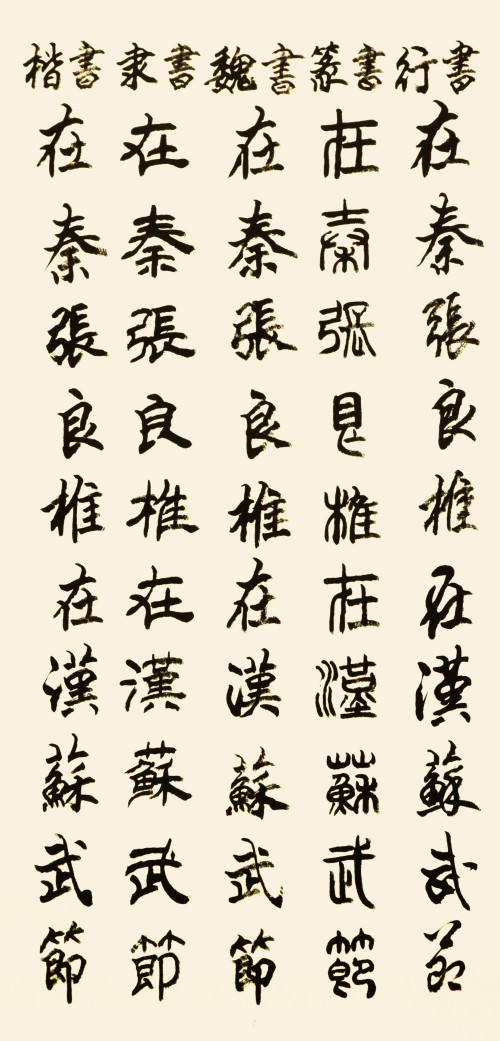 楷書 隶書 魏書 篆書 行書
在秦張良椎在漢蘇武節
在秦張良椎在漢蘇武節
在秦張良椎在漢蘇武節
在秦張良椎在漢蘇武節
在秦張良椎在漢蘇武節